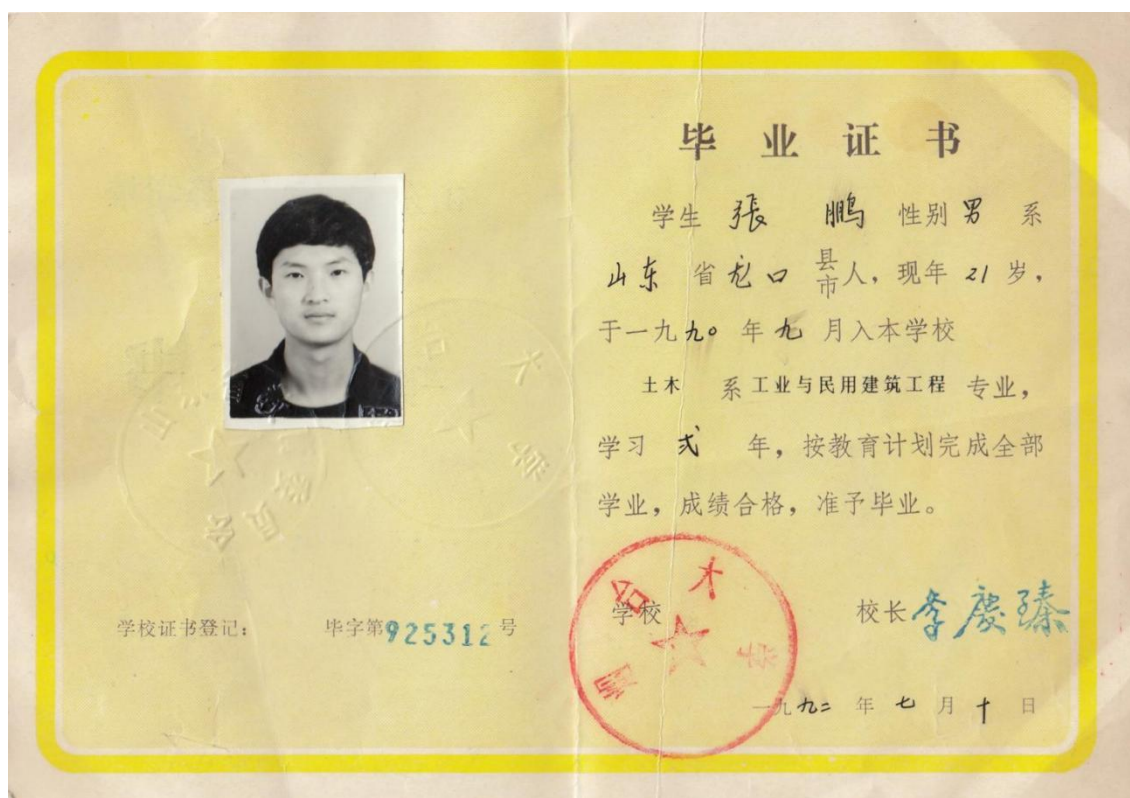 毕业证书
学生 張 鹏 性别 男 系
山东 省 龙口 县市人，现年 21 岁，
于一九九〇年九月入本学校
土木 系 工业与民用建筑工程 专业，
学习 弍 年，按教育计划完成全部
学业，成绩合格，准予毕业。
学校 校长 李慶臻
一九九二年七月十日
烟台大学
学校证书登记： 毕字第925312号